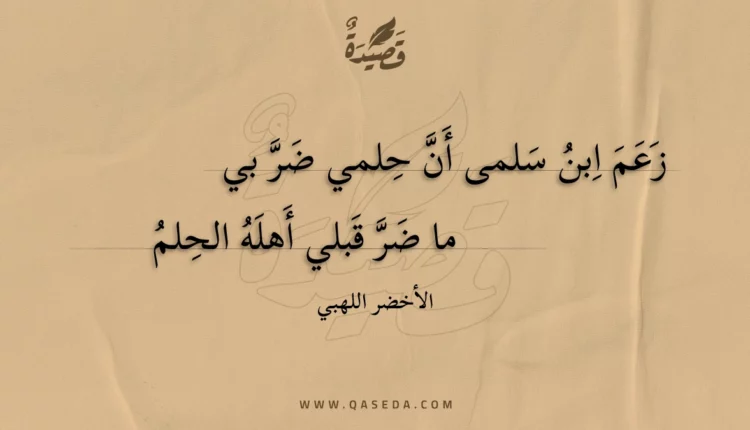 قَصِيدَةٌ
زَعَمَ اِبنُ سَلمى أَنَّ حِلمي ضَرَّ بي
ما ضَرَّ قَبلي أَهلَهُ الحِلمُ
الأخضر اللهبي
WWW.QASEDA.COM